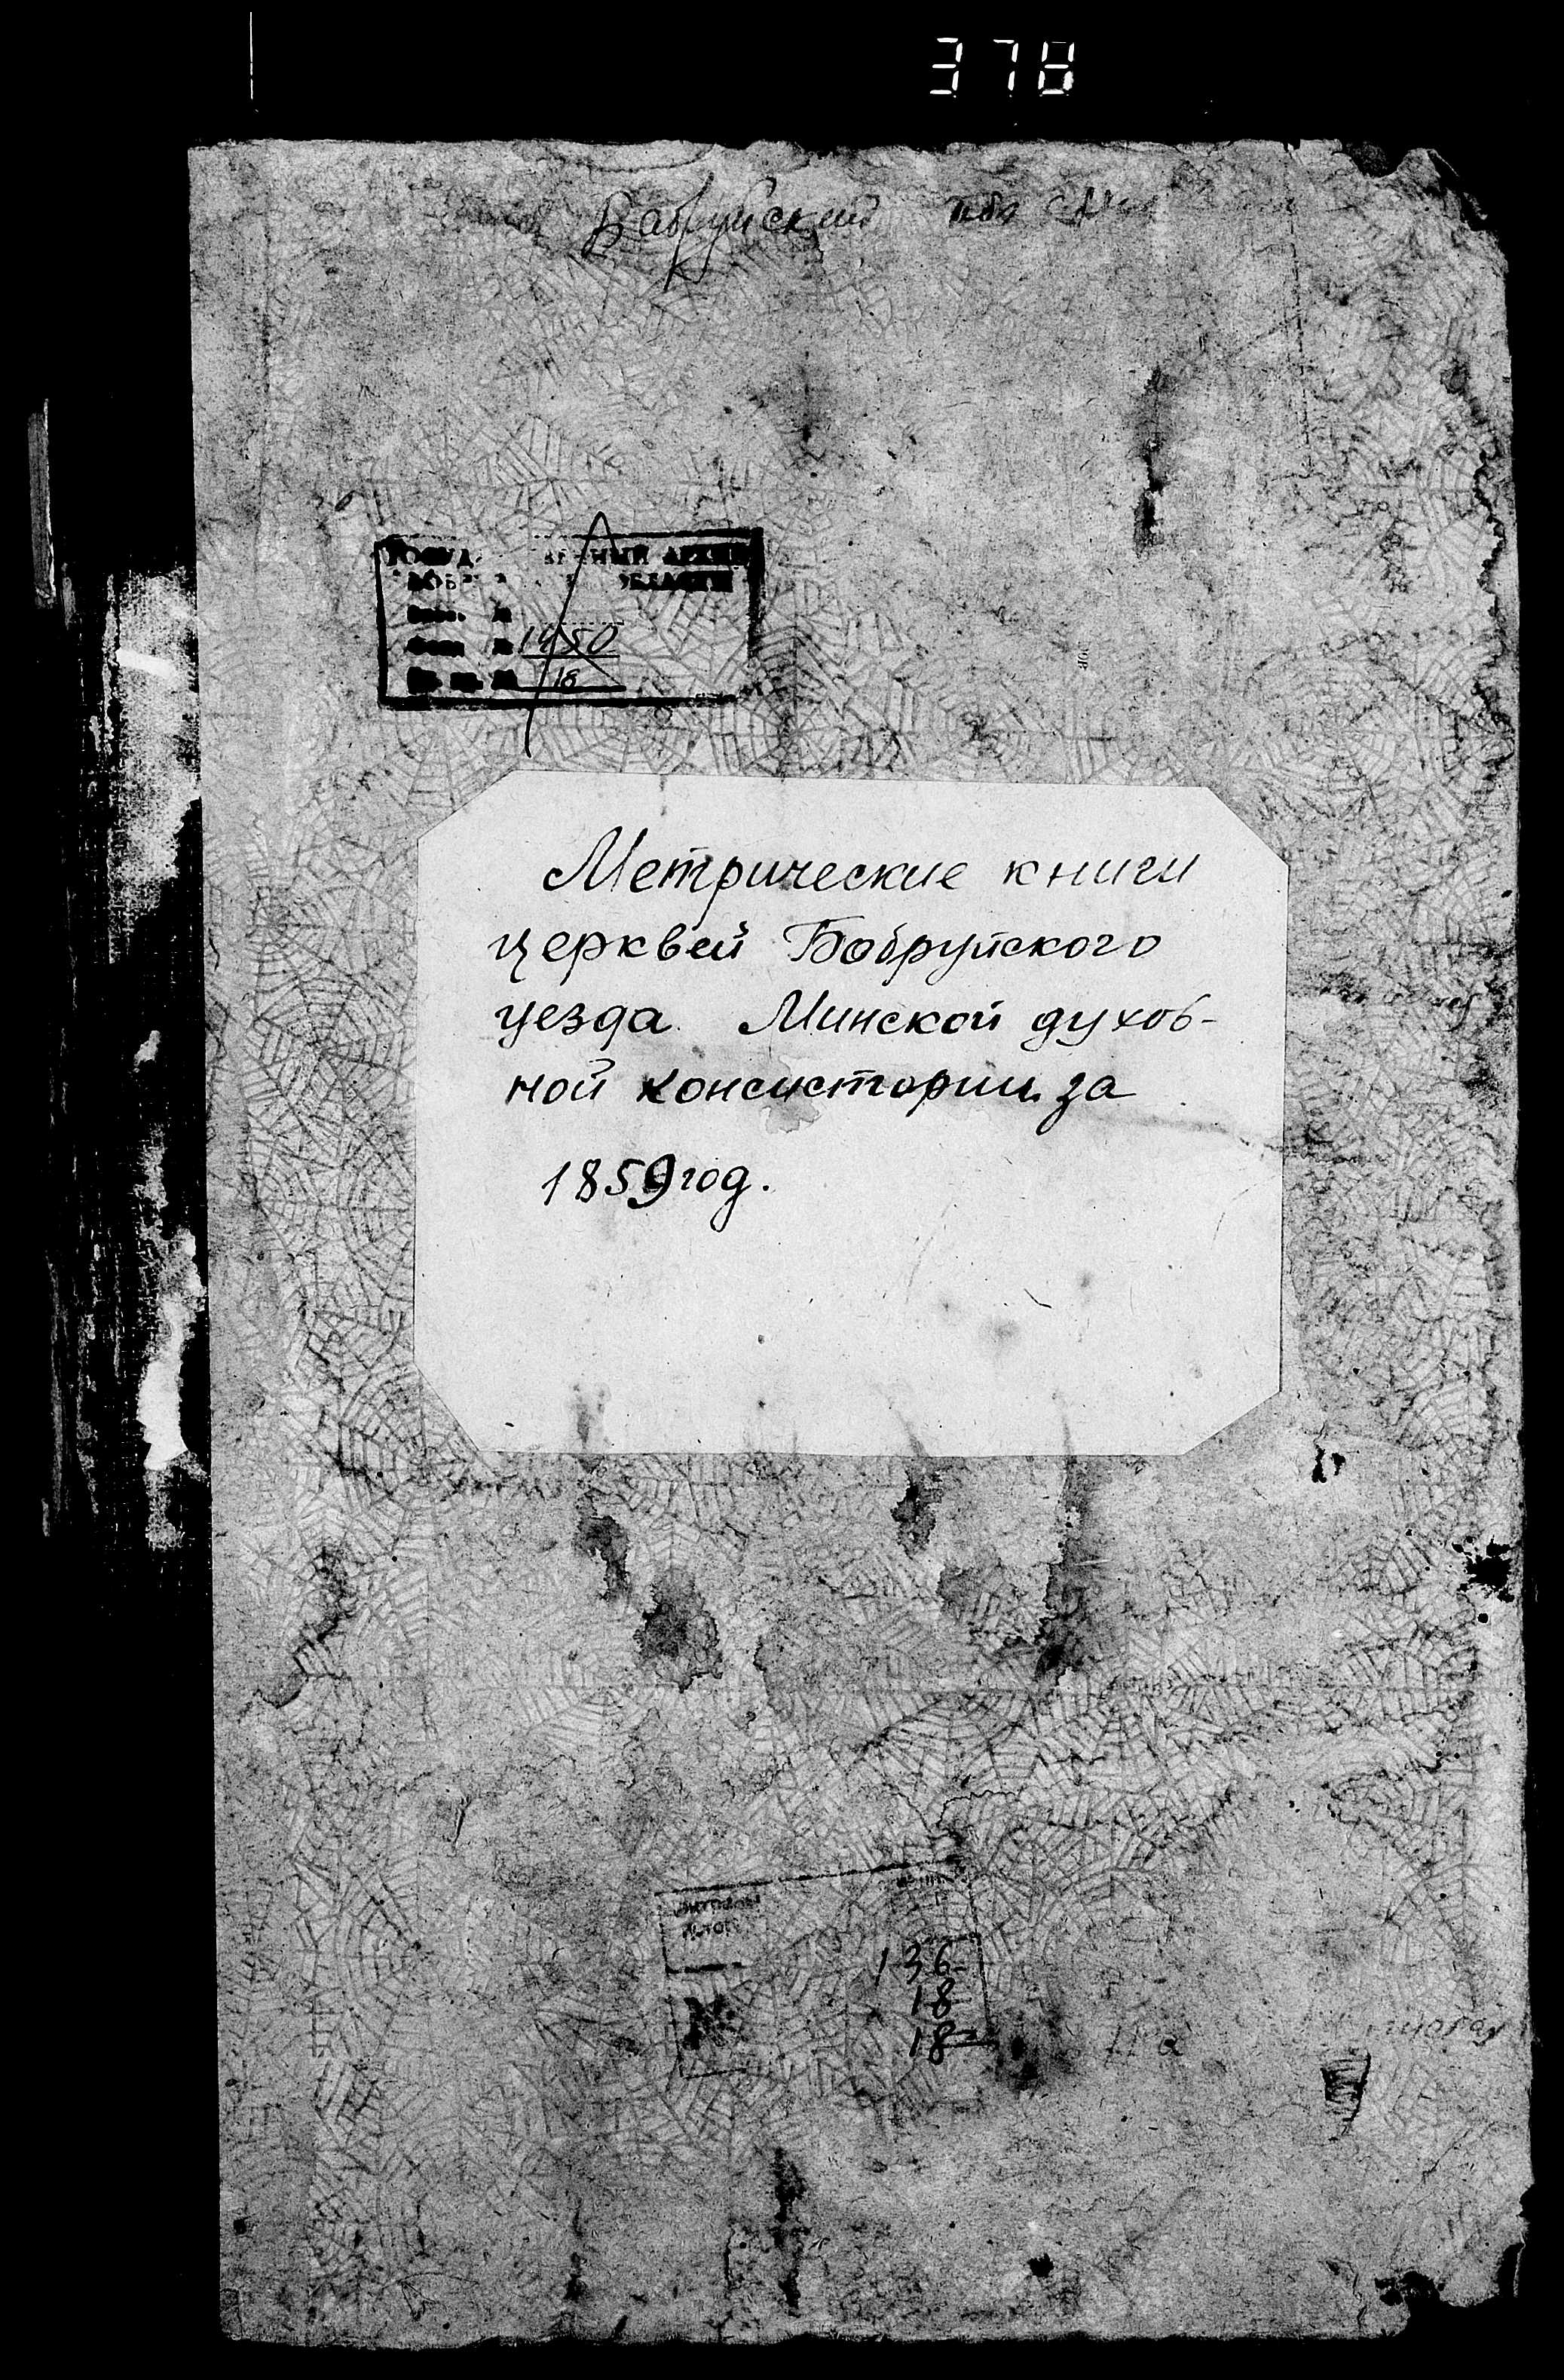 378
Бабруйский
АРХИВ
ОБЛАСТИ
1450
18
Метрические книги
церквей Бобруйского
уезда Минской духов-
ной консистории за
1859 год.
136
18
18